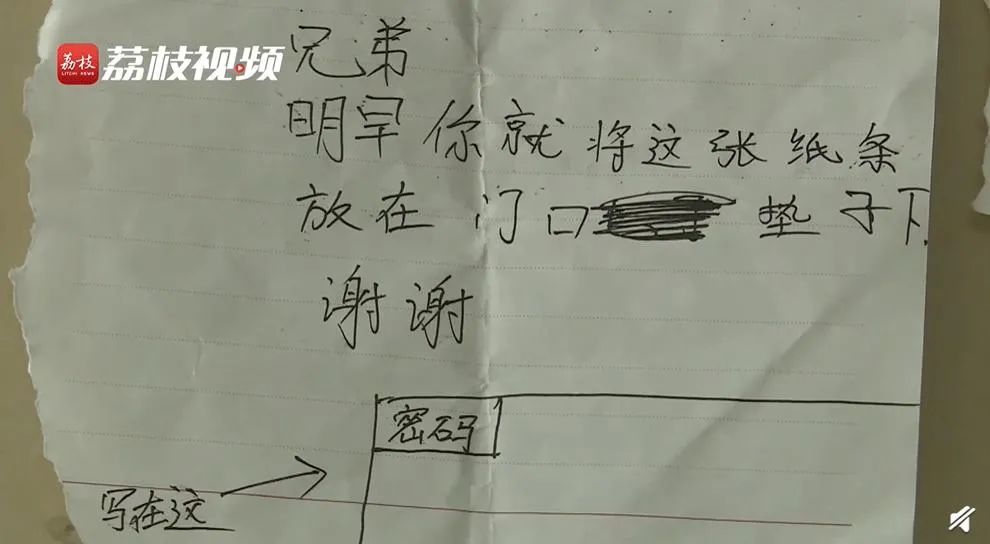 荔枝
LITCHI NEWS
荔枝视频
兄弟
明早你就将这张纸条
放在门口垫子下
谢谢
密码
写在这